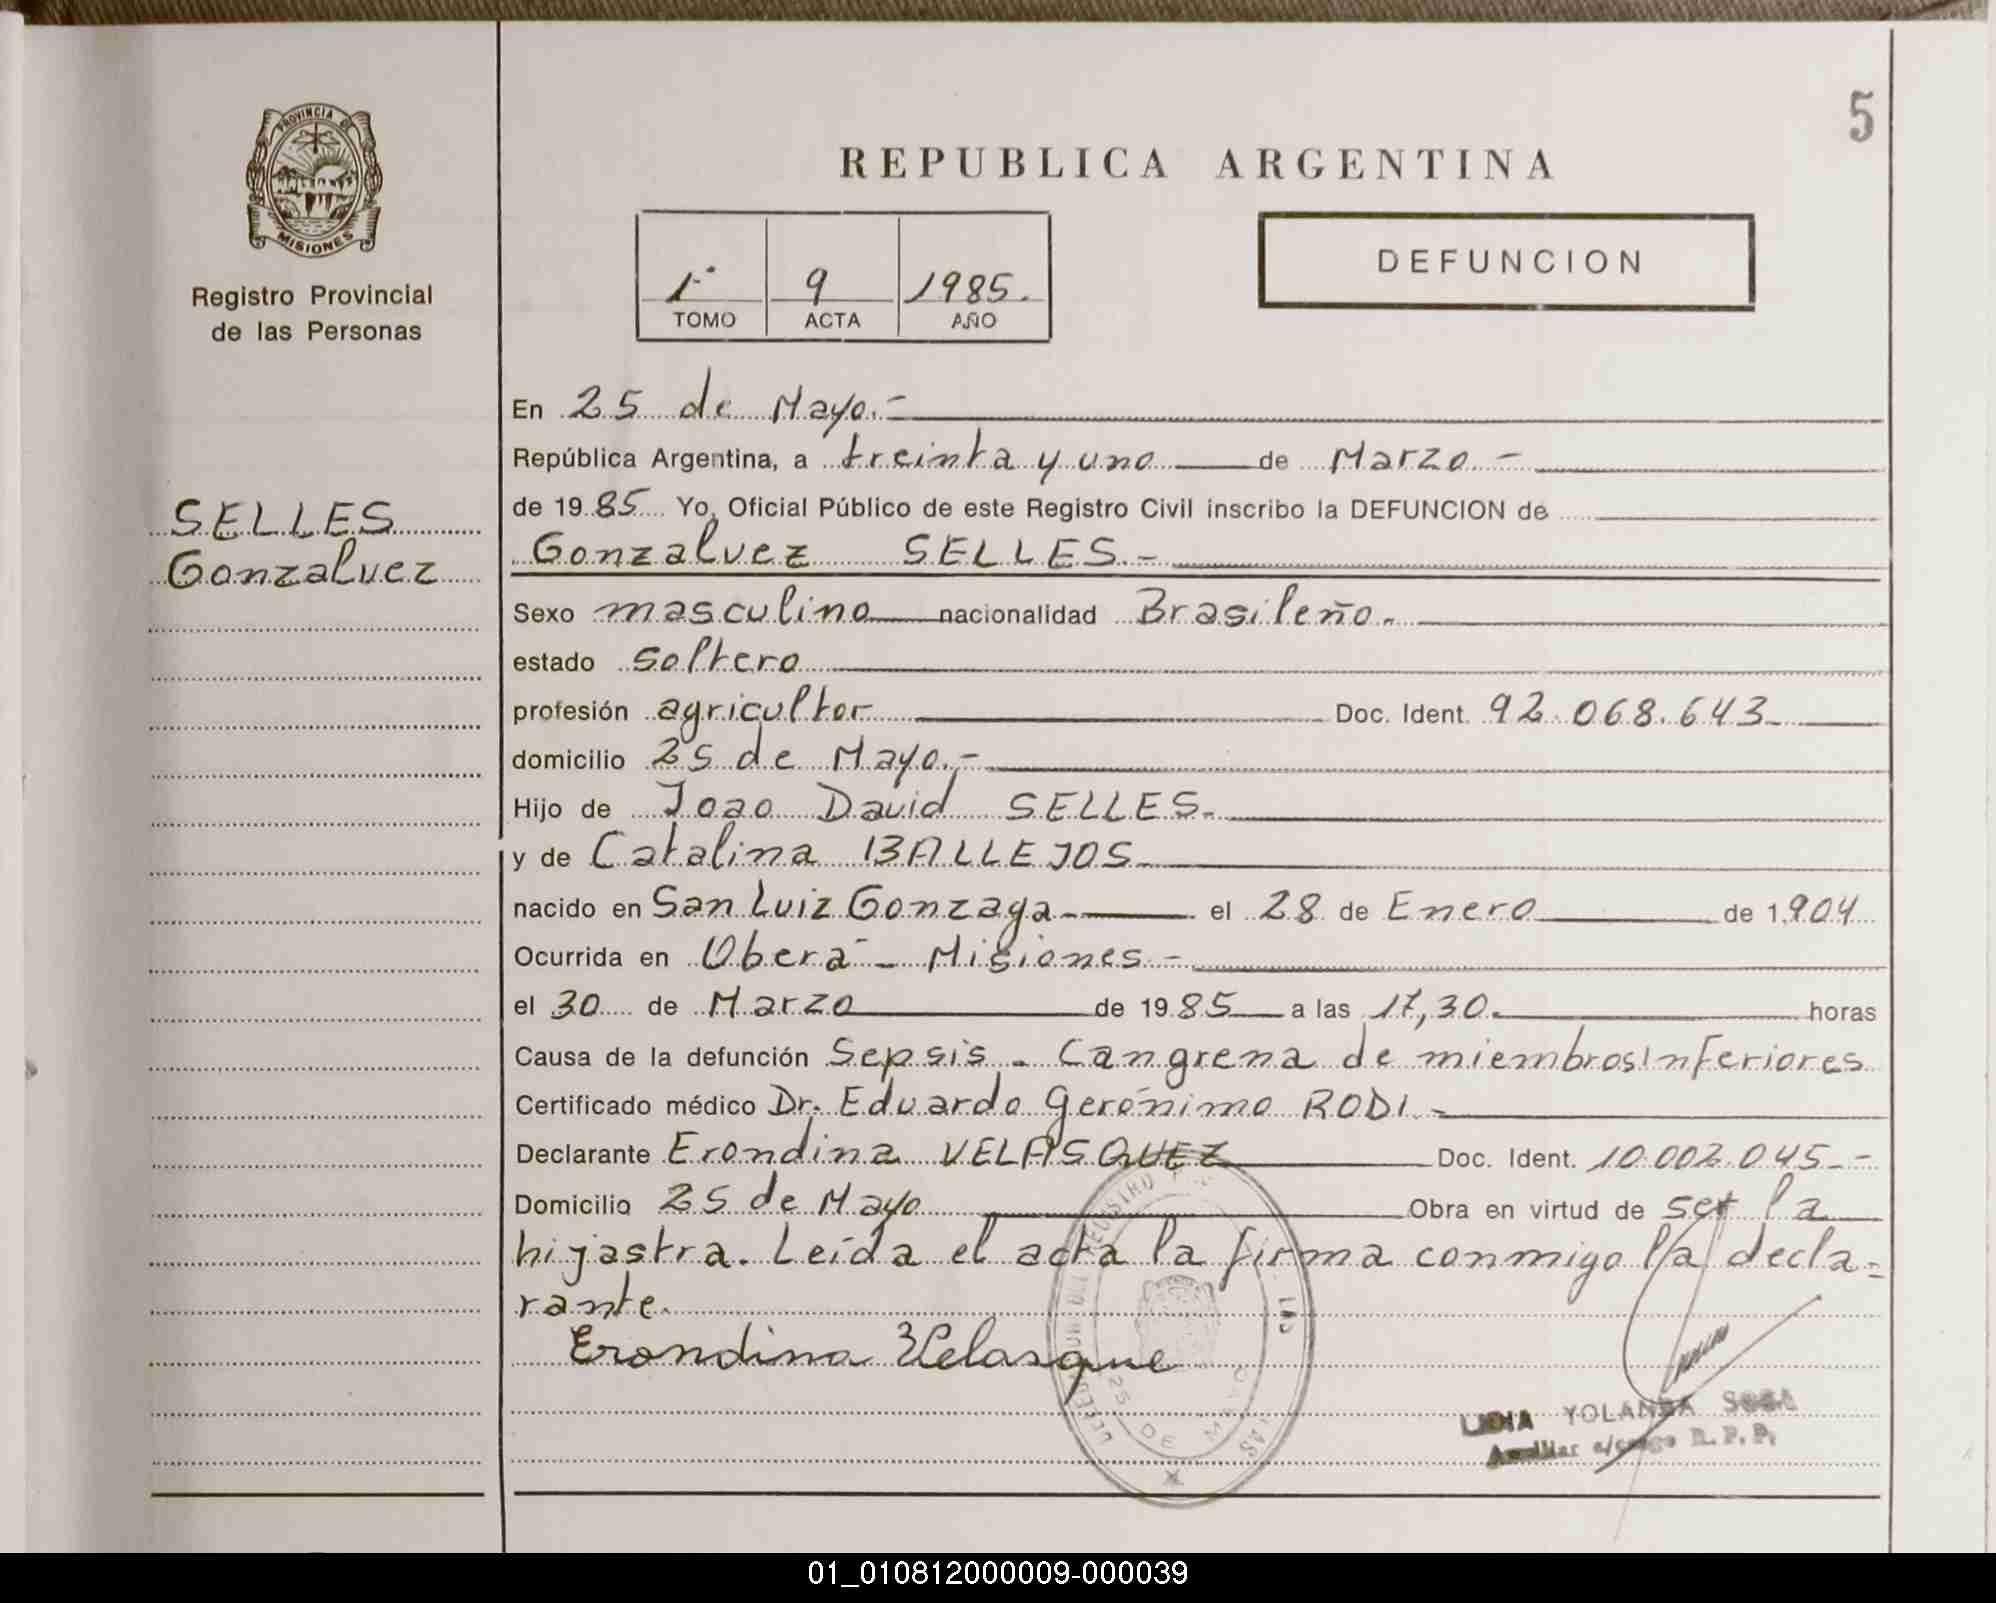 5
PROVINCIA DE
MISIONES
Registro Provincial
de las Personas
REPUBLICA ARGENTINA
1° 9 1985.
TOMO ACTA AÑO
DEFUNCION
SELLES
Gonzalvez
En 25 de Mayo.-
República Argentina, a treinta y uno de Marzo -
de 1985 Yo, Oficial Público de este Registro Civil inscribo la DEFUNCION de
Gonzalvez SELLES.-
Sexo masculino nacionalidad Brasileño.
estado soltero
profesión agricultor Doc. Ident. 92.068.643
domicilio 25 de Mayo.-
Hijo de Joao David SELLES.
y de Catalina BALLEJOS
nacido en San Luiz Gonzaga- el 28 de Enero de 1.904
Ocurrida en Oberá - Misiones -
el 30 de Marzo de 1985 a las 17,30. horas
Causa de la defunción Sepsis - Cangrena de miembros inferiores
Certificado médico Dr. Eduardo Gerónimo RODI -
Declarante Erondina VELASQUEZ Doc. Ident. 10.002.045 -
Domicilio 25 de Mayo Obra en virtud de ser la
hijastra. Leída el acta la firma conmigo la decla-
rante.
Erondina Velasque
25 DE MAYO
LIDIA YOLANDA SOSA
Auxiliar a/cargo R. P. P.
01_010812000009-000039